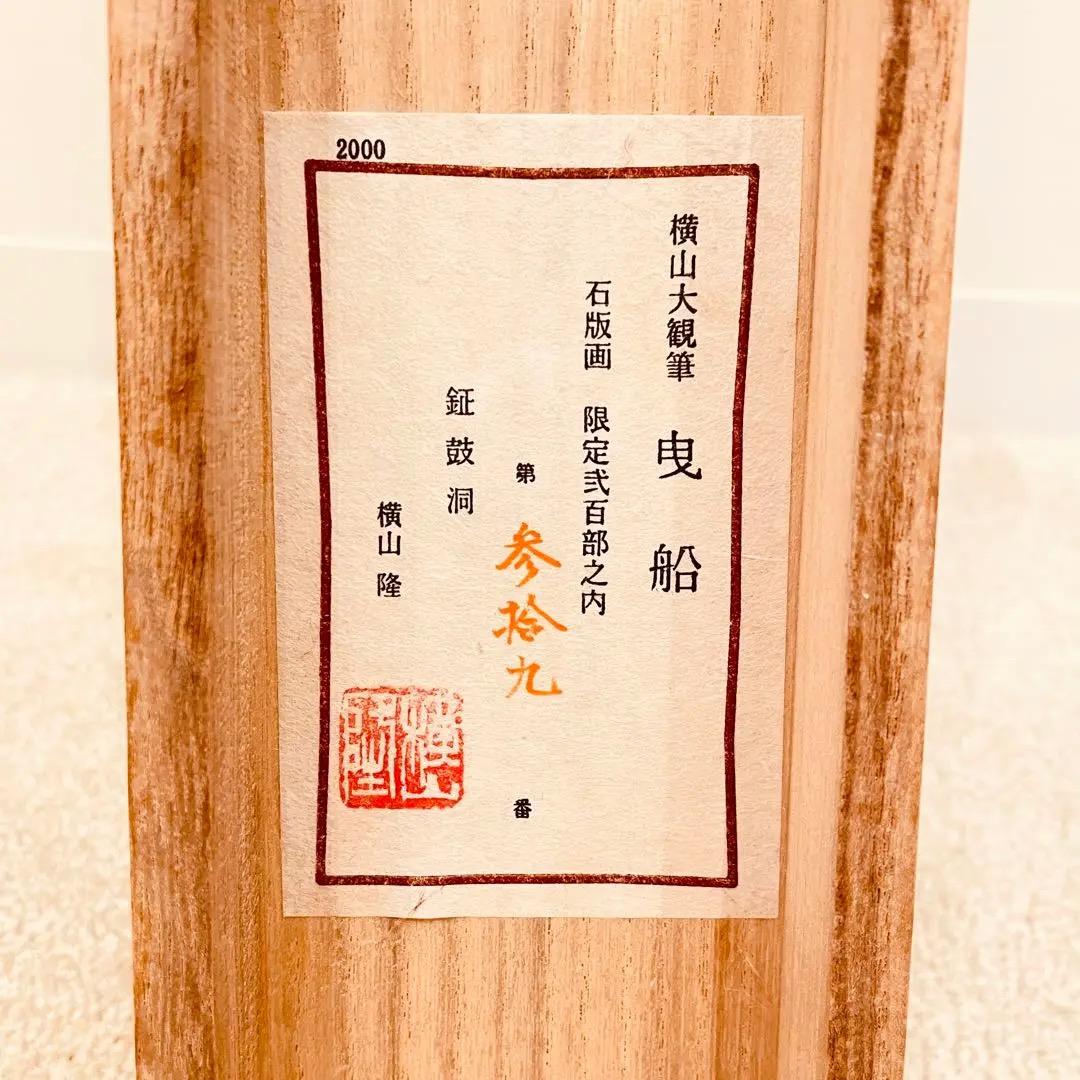 2000
横山大観筆 曳船
石版画 限定弐百部之内
第 参拾九 番
鉦鼓洞
横山 隆
横山
隆